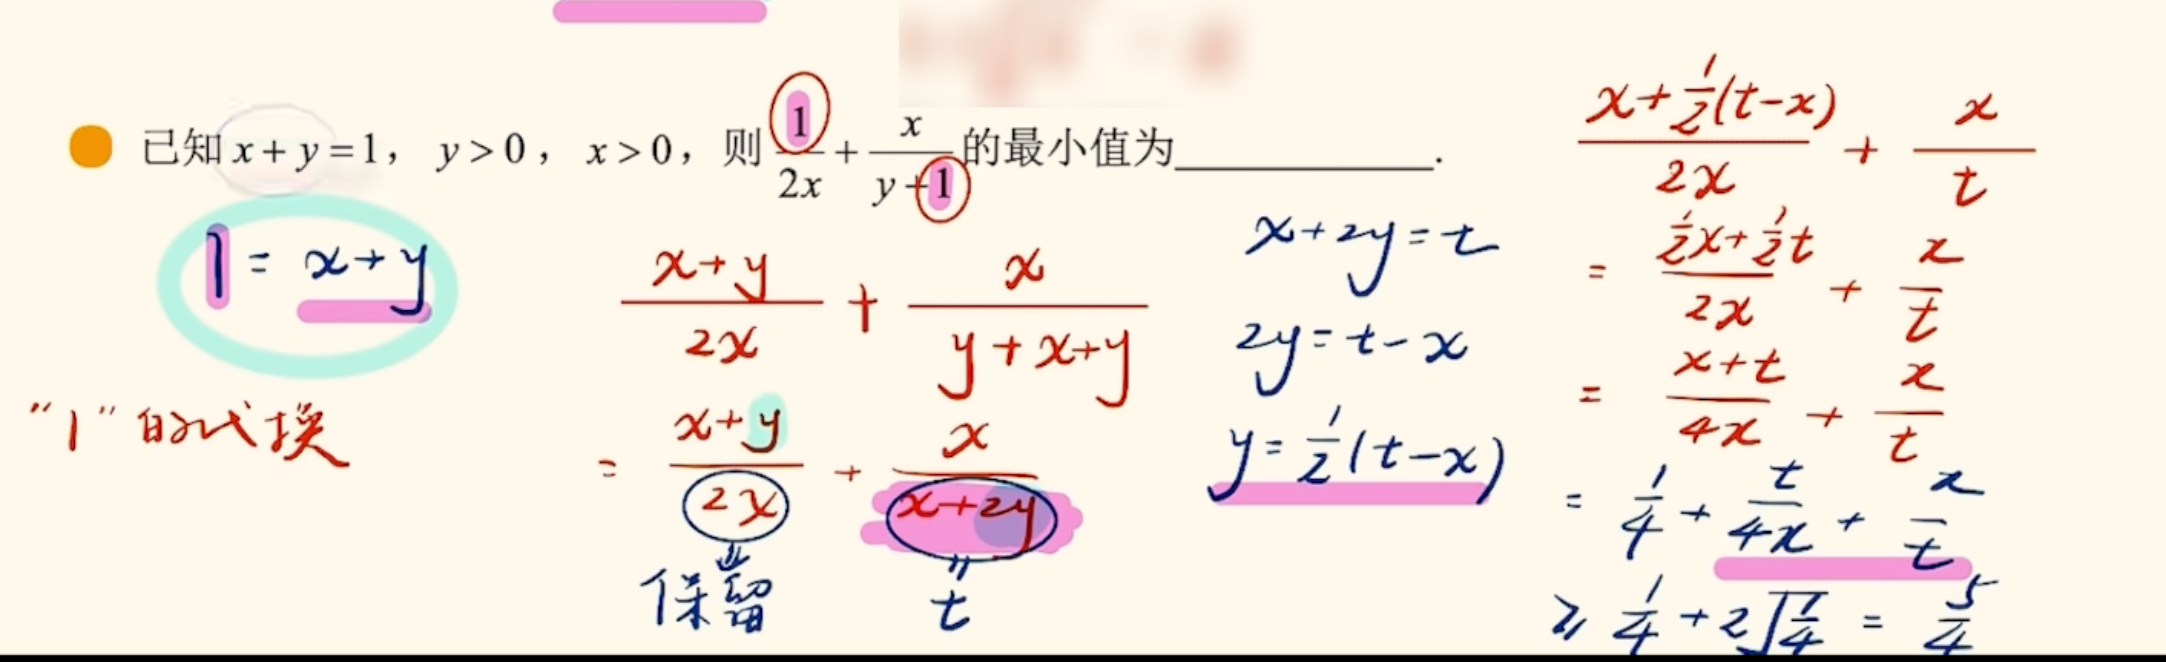 已知 x+y=1, y>0, x>0, 则 1/(2x) + x/(y+1) 的最小值为____________.
1 = x+y
"1"的代换
(x+y)/(2x) + x/(y+x+y)
= (x+y)/(2x) + x/(x+2y)
保留
t
x+2y=t
2y=t-x
y=1/2(t-x)
(x+1/2(t-x))/(2x) + x/t
= (1/2x+1/2t)/(2x) + x/t
= (x+t)/(4x) + x/t
= 1/4 + t/(4x) + x/t
≥ 1/4 + 2√(1/4) = 5/4